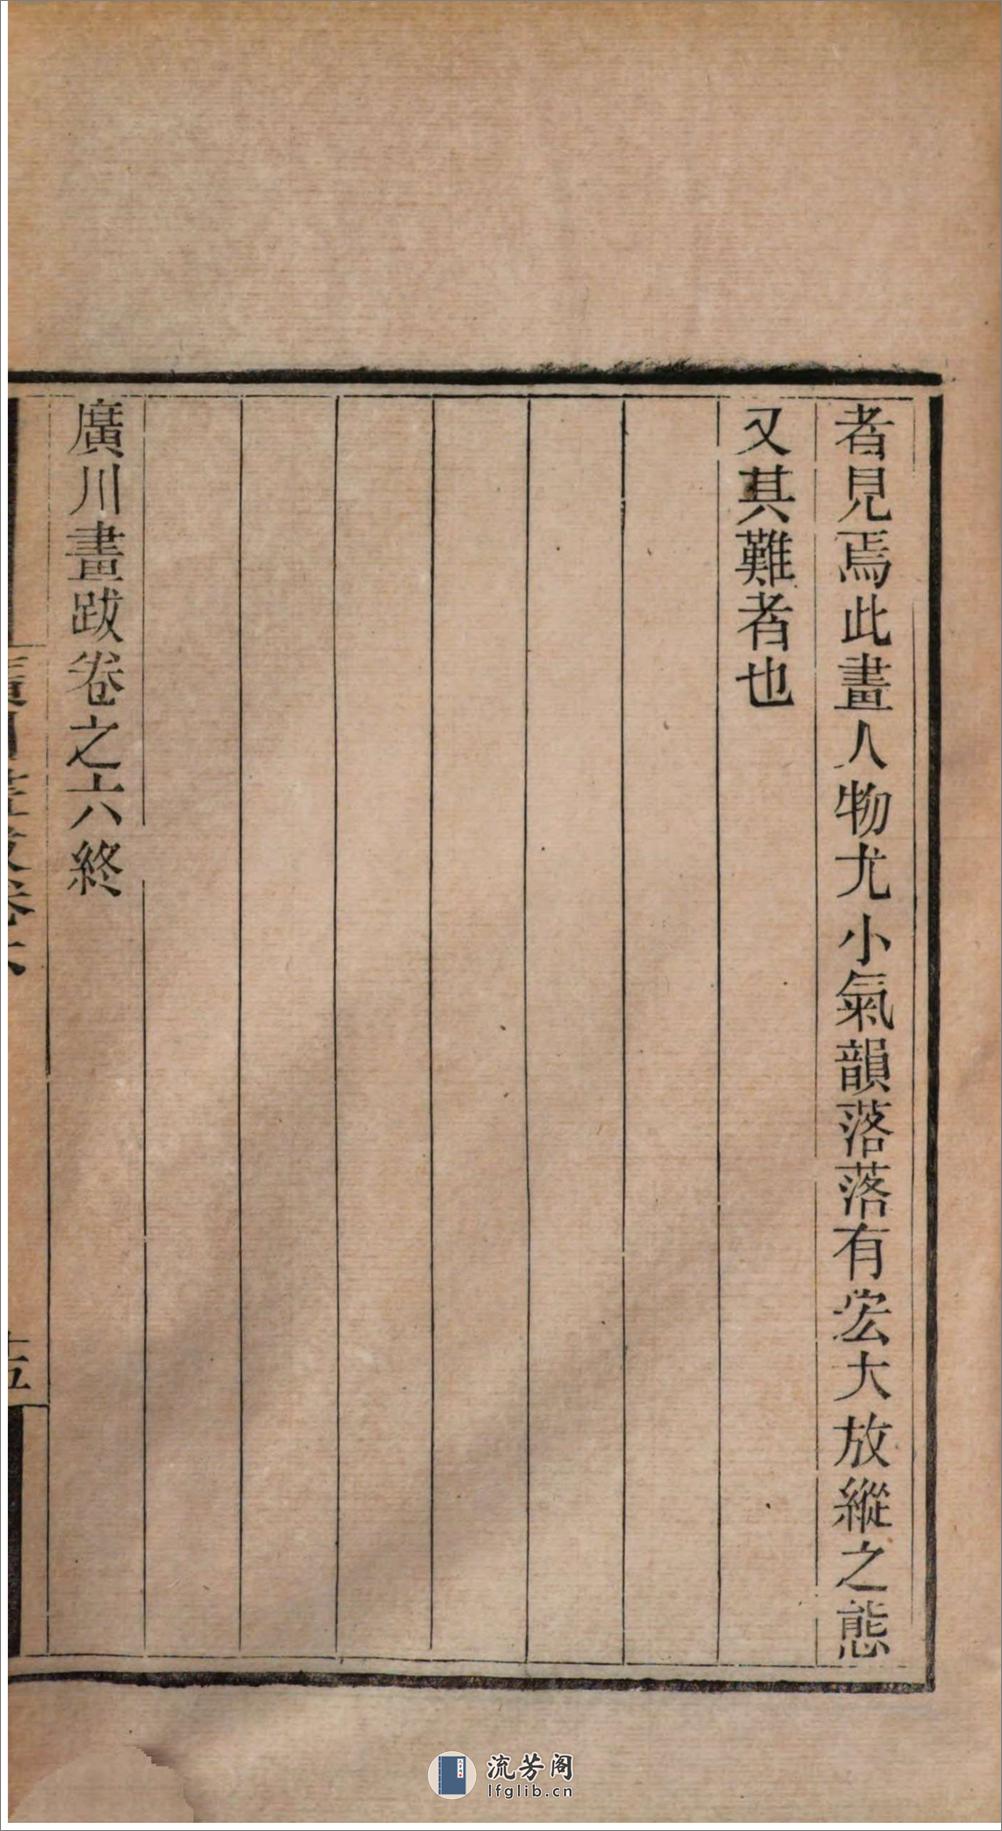 者見焉此畫人物尤小氣韻落落有宏大放縱之態
又其難者也
廣川畫跋卷之六終
流芳阁
lfglib.cn